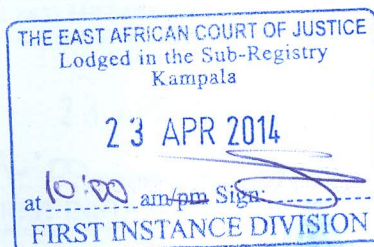 THE EAST AFRICAN COURT OF JUSTICE
Lodged in the Sub-Registry
Kampala
23 APR 2014
at 10:00 am/pm Sign:
FIRST INSTANCE DIVISION